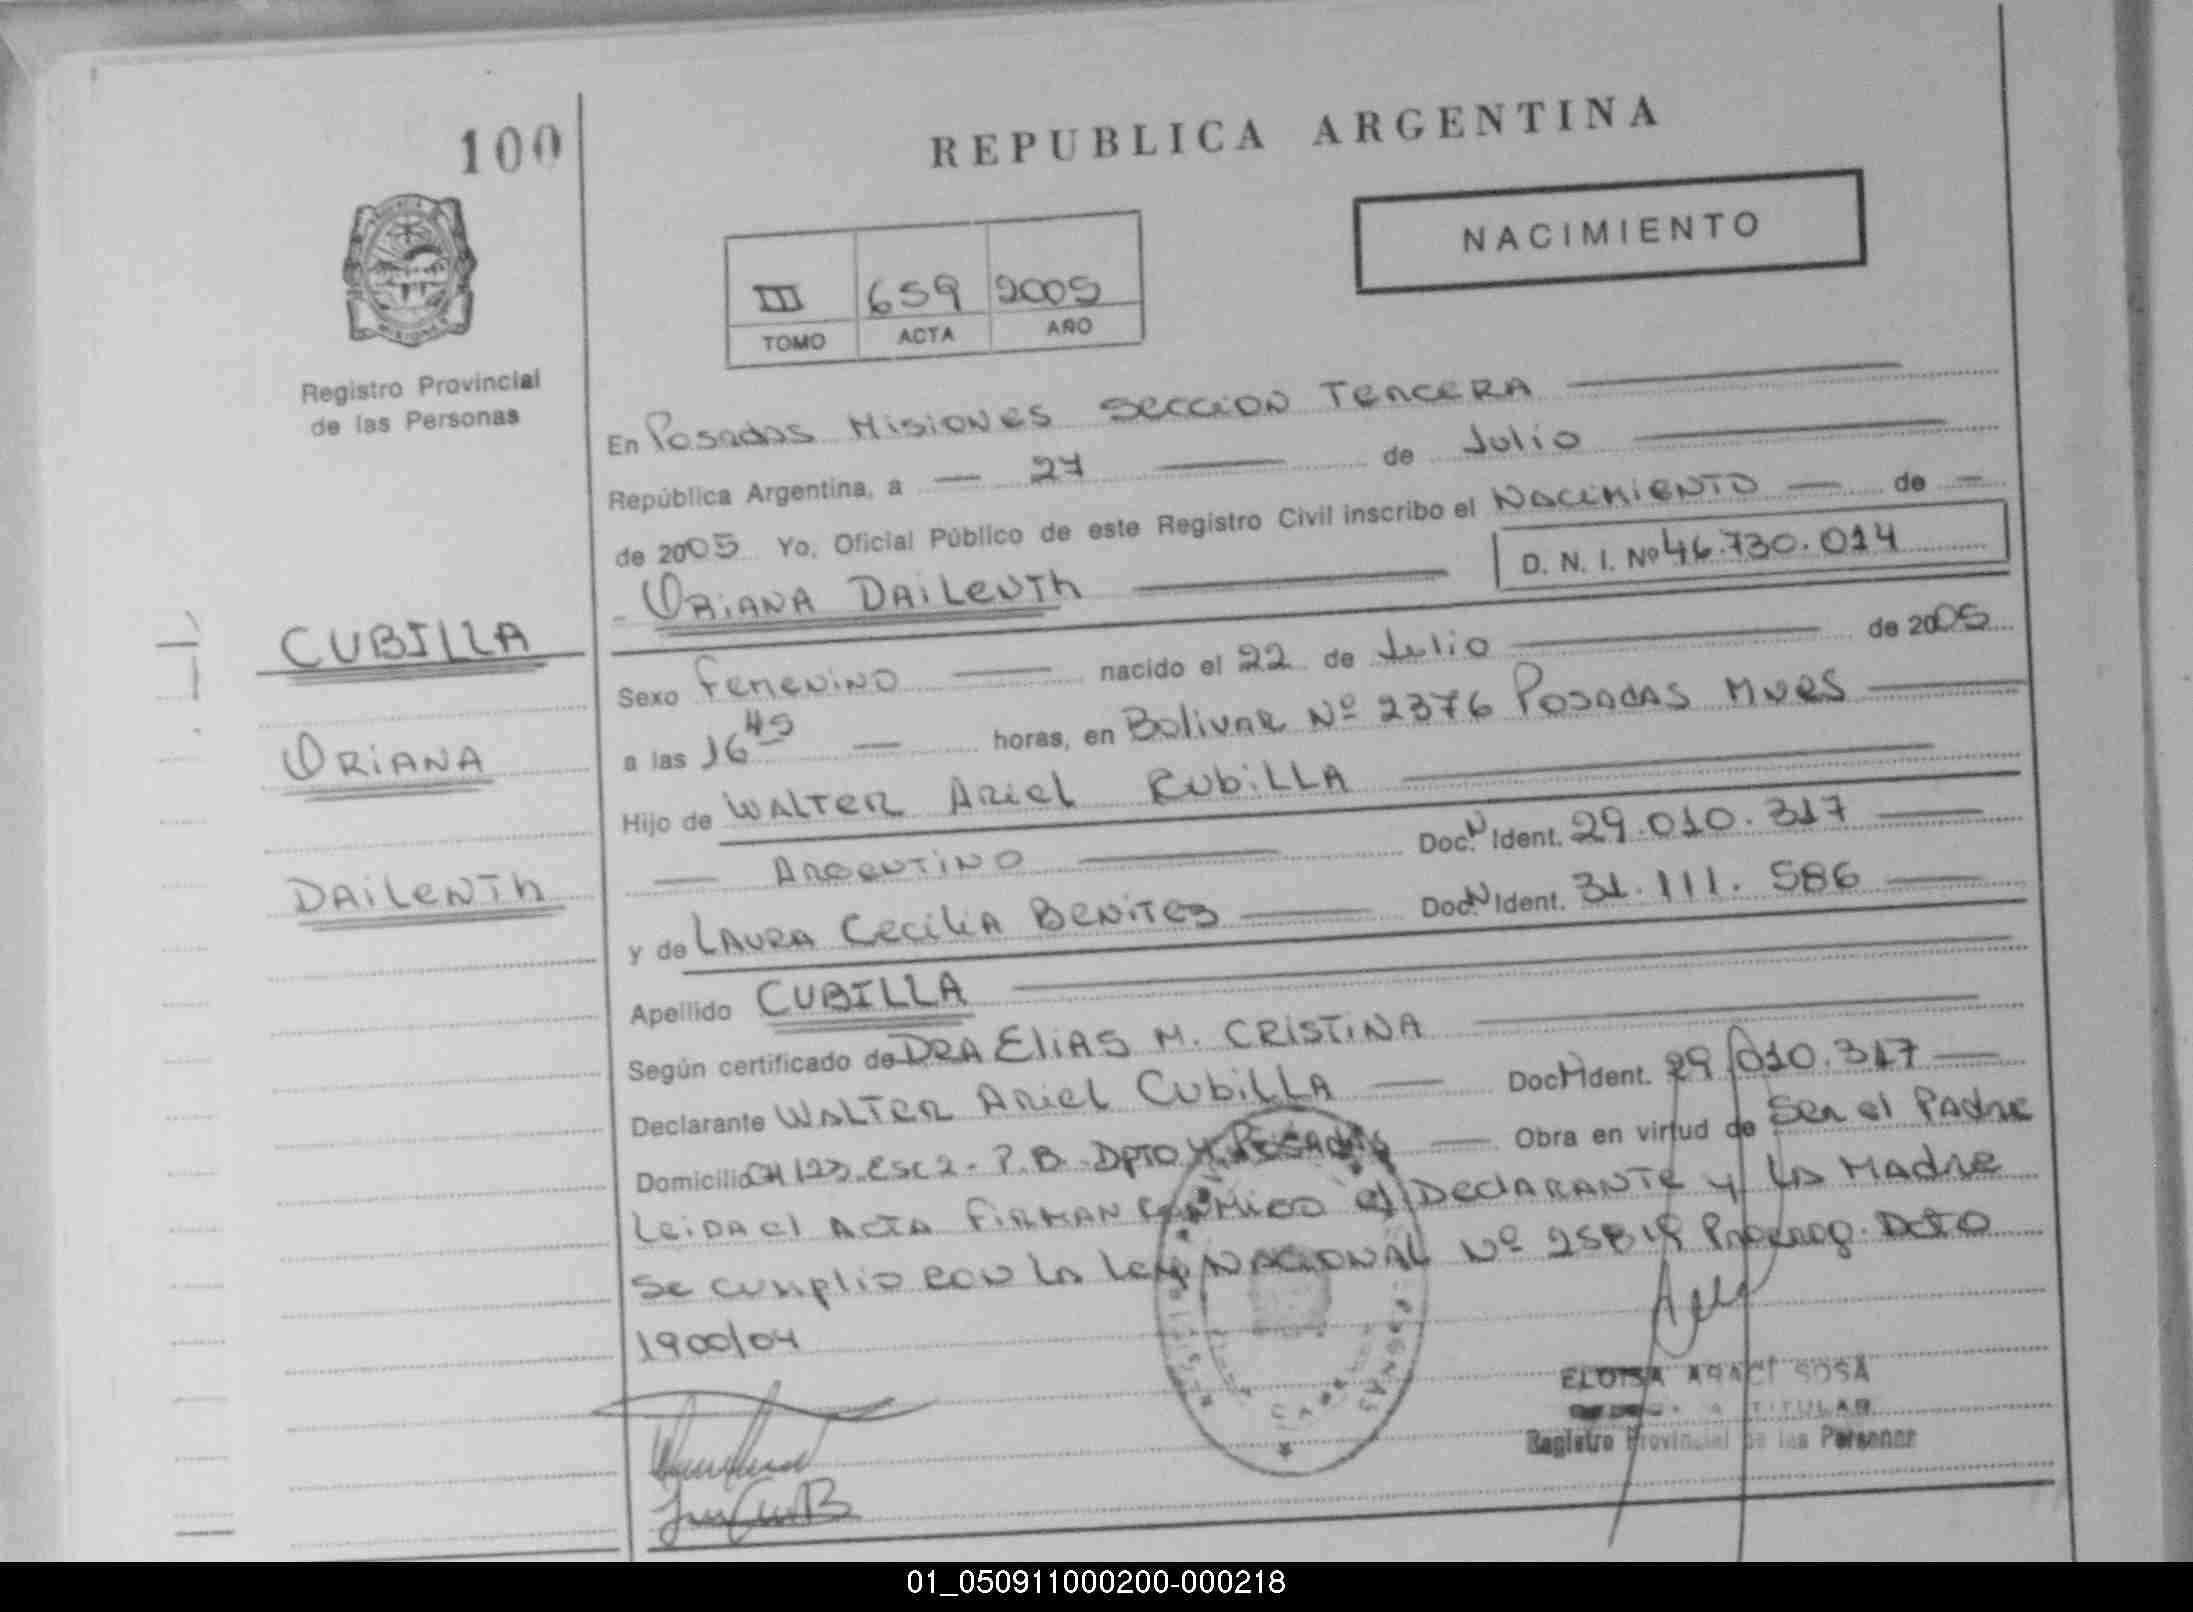 100
REPUBLICA ARGENTINA
NACIMIENTO
III 659 2005
TOMO ACTA AÑO
Registro Provincial
de las Personas
En Posadas Misiones Sección Tercera
República Argentina, a 27 de Julio
de 2005 Yo, Oficial Público de este Registro Civil inscribo el Nacimiento de
Oriana Dailenth D. N. I. Nº 46.730.014
CUBILLA
Oriana
Dailenth
Sexo Femenino nacido el 22 de Julio de 2005
a las 16 45 horas, en Bolivar Nº 2376 Posadas Mnes
Hijo de Walter Ariel Cubilla
Argentino Doc. N Ident. 29.010.317
y de Laura Cecilia Benites Doc. N Ident. 31.111.586
Apellido CUBILLA
Según certificado de Dra Elias M. Cristina
Declarante Walter Ariel Cubilla Doc. N Ident. 29.010.317
Domicilio CH 123 Esc 2 - P.B. Dpto Posadas Obra en virtud de Ser el Padre
Leida el Acta Firman conmigo el Declarante y la Madre
Se cumplio con la Ley Nacional Nº 25819 Prorrog. Dcto
1900/04
ELOISA ARACI SOSA
TITULAR
Registro Provincial de las Personas
01_050911000200-000218